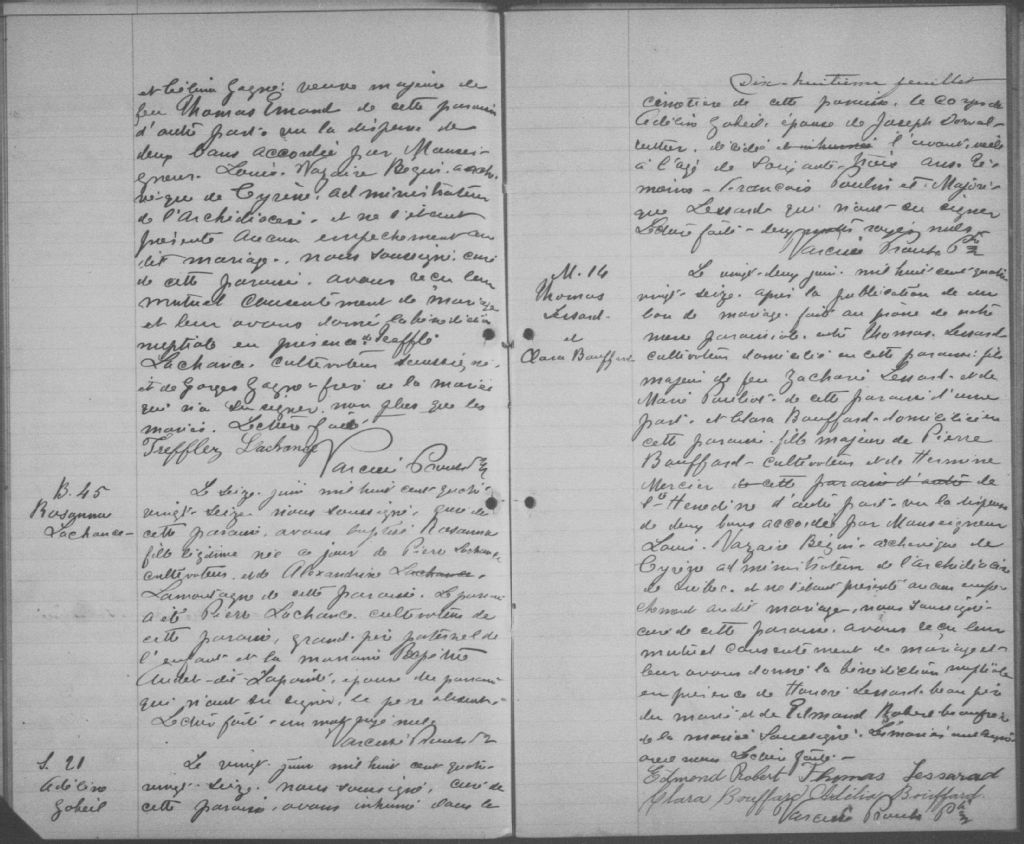 et Célina Gagné veuve majeure de
feu Thomas Emond de cette paroisse
d'autre part vu la dispense de
deux bans accordée par Monsei-
gneur Louis Nazaire Bégin arche-
vêque de Cyrène, administrateur
de l'Archidiocèse et ne s'étant
présenté aucun empêchement au
dit mariage, nous soussigné curé
de cette paroisse avons reçu leur
mutuel consentement de mariage
et leur avons donné la bénédiction
nuptiale en présence de Treffle
Lachance cultivateur soussigné
et de Georges Gagné frère de la mariée
qui n'a su signer non plus que les
mariés. Lecture faite
Treffley Lachance
B. 45
Rosanna
Lachance
Le seize juin mil huit cent quatre
vingt seize nous soussigné, curé de
cette paroisse, avons baptisé Rosanna
fille légitime née ce jour de Pierre Lachance
cultivateur et de Alexandrine Lachance
Lamontagne de cette paroisse. Le parrain
a été Pierre Lachance cultivateur de
cette paroisse, grand père paternel de
l'enfant et la marraine
Audet dit Lapointe, épouse du parrain
qui n'ont su signer, le père absent.
Lecture faite un mot rayé nul
S. 21
Adéline
Goheil
Le vingt juin mil huit cent quatre
vingt seize nous soussigné, curé de
cette paroisse, avons inhumé dans le
Dix-huitième feuillet
cimetière de cette paroisse le corps de
Adéline Goheil, épouse de Joseph Dorval
décédée et inhumée l'avant veille
à l'âge de soixante trois ans. Té-
moins François Poulin et Majori-
que Lessard qui n'ont su signer
Lecture faite deux mots rayés nuls
M. 14
Thomas
Lessard
et
Clara Bouffard
Le vingt deux juin mil huit cent quatre
vingt seize après la publication de un
ban de mariage faite au prône de notre
messe paroissiale entre Thomas Lessard
cultivateur domicilié en cette paroisse fils
majeur de feu Zacharie Lessard et de
Marie Pouliot de cette paroisse d'une
part et Clara Bouffard domiciliée en
cette paroisse fille majeure de Pierre
Bouffard cultivateur et de Hermine
Mercier de cette paroisse d'autre de
Ste Hénédine d'autre part vu la dispense
de deux bans accordée par Monseigneur
Louis Nazaire Bégin archevêque de
Cyrène administrateur de l'archidiocèse
de Québec et ne s'étant présenté aucun empê-
chement au dit mariage, nous soussigné
curé de cette paroisse avons reçu leur
mutuel consentement de mariage et
leur avons donné la bénédiction nuptiale
en présence de Honoré Lessard beau père
du marié et de Edmond Robert beau frère
de la mariée soussigné. Les mariés ont signé
avec nous Lecture faite
Edmond Robert Thomas Lessarad
Clara Bouffard Adélia Bouffard